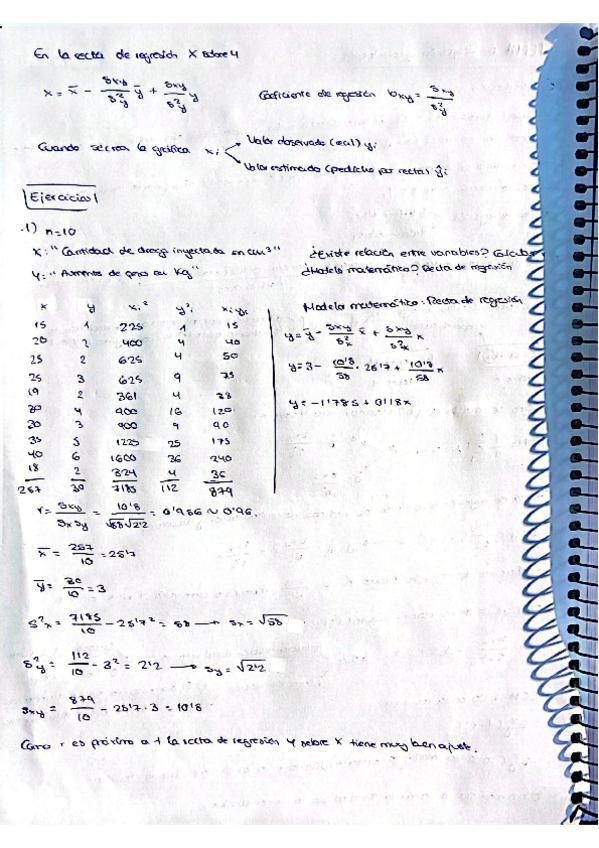 En la recta de regresión X sobre Y
x = x̄ - Sxy/S²y ȳ + Sxy/S²y y
Coeficiente de regresión bxy = Sxy/S²y
Cuando se crea la gráfica xi
Valor observado (real) yi
Valor estimado (predicho por recta) ŷi
Ejercicios
1) n=10
X: "Cantidad de droga inyectada en cm³"
¿Existe relación entre variables?
Y: "Aumento de peso en Kg"
¿Modelo matemático? Recta de regresión
x y xi² y²i xi yi
15 1 225 1 15
20 2 400 4 40
25 2 625 4 50
25 3 625 9 75
19 2 361 4 38
30 4 900 16 120
30 3 900 9 90
35 5 1225 25 175
40 6 1600 36 240
18 2 324 4 36
257 30 7185 112 879
Modelo matemático: Recta de regresión
y = ȳ - Sxy/S²x x̄ + Sxy/S²x x
y = 3 - 10'8/58 · 25'7 + 10'8/58 x
y = -1'785 + 0'18x
r = Sxy/Sx Sy = 10'8/√58 √2'2 = 0'956 ~ 0'96.
x̄ = 257/10 = 25'7
ȳ = 30/10 = 3
S²x = 7185/10 - 25'7² = 58 → Sx = √58
S²y = 112/10 - 3² = 2'2 → Sy = √2'2
Sxy = 879/10 - 25'7 · 3 = 10'8
Como r es próximo a +1 la recta de regresión Y sobre X tiene muy buen ajuste.